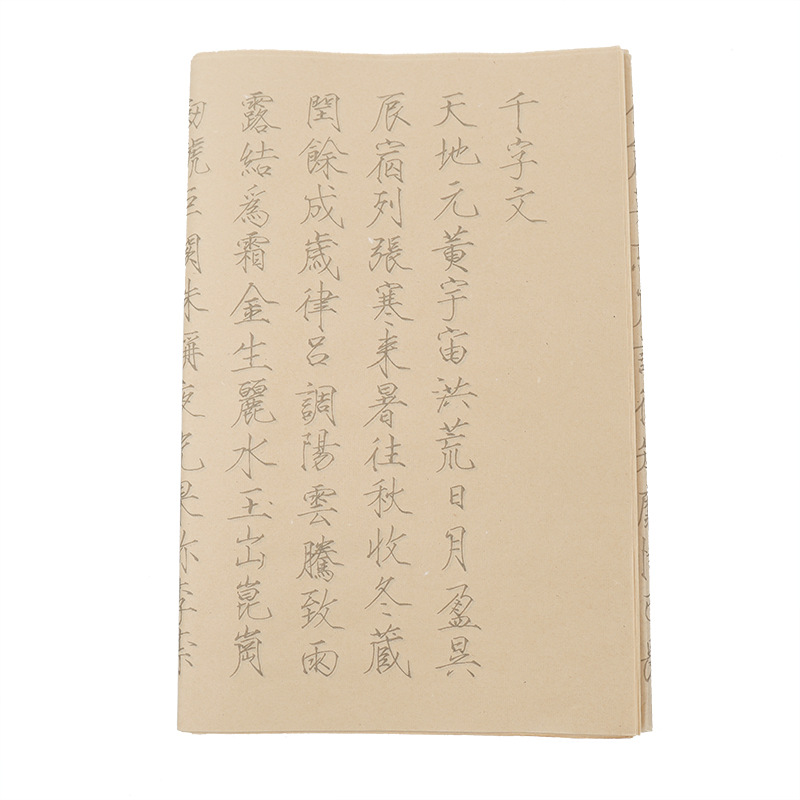 千字文
天地元黃宇宙洪荒日月盈昃
辰宿列張寒來暑往秋收冬蔵
閏餘成歲律呂調陽雲騰致雨
露結爲霜金生麗水玉出崑崗
號巨闕珠稱夜光果珍李柰